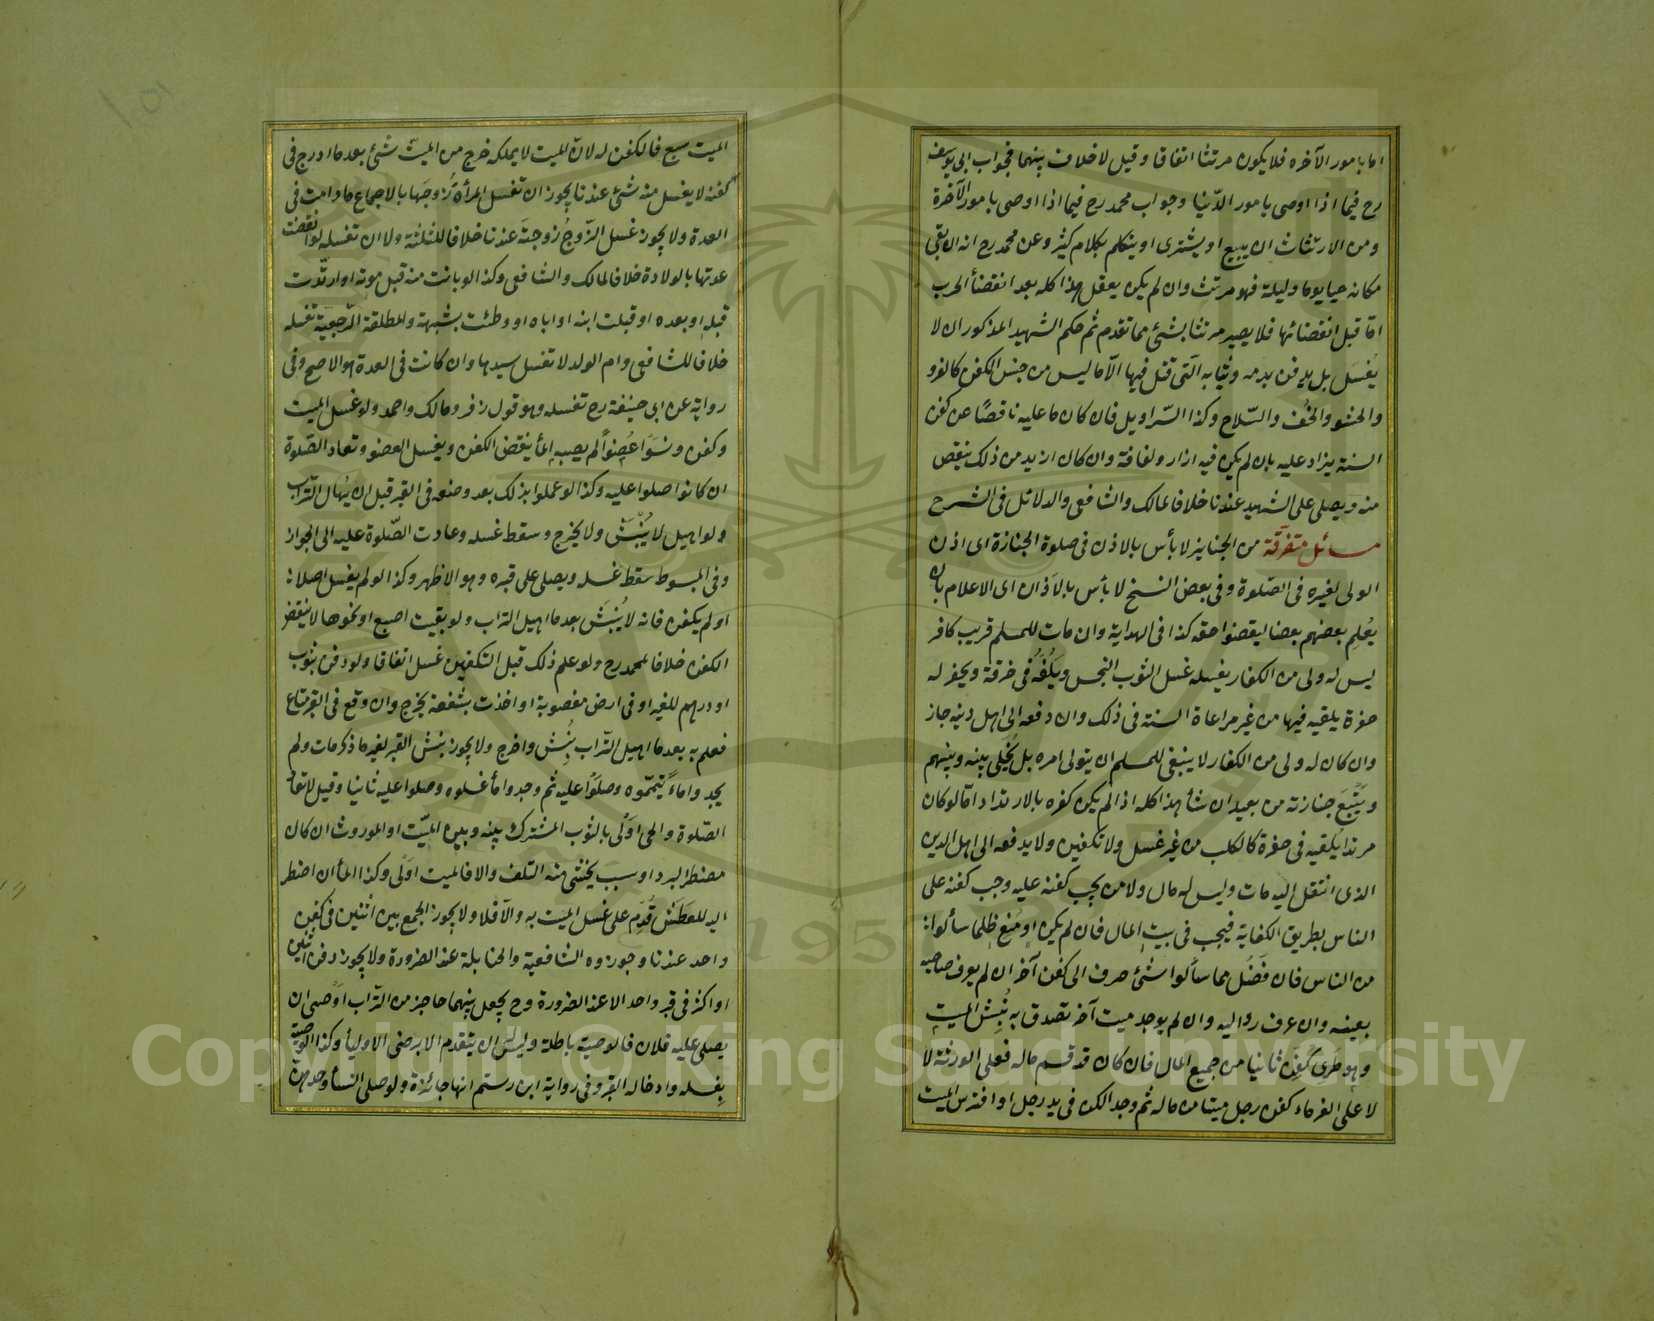 اما بامور الآخره فلا يكون مرتثا اتفاقا وقيل لا خلاف بينهما فجواب ابى يوسف
رح فيما اذا اوصى بامور الدّنيا وجواب محمد رح فيما اذا اوصى بامور الآخرة
ومن الارتثاث ان يبيع او يشترى او يتكلم بكلام كثير وعن محمد رح انه ان بقى
مكانه حيا يوما وليلة فهو مرتث وان لم يكن يعقل هذا كله بعد انقضأ الحرب
امّا قبل انقضائها فلا يصير مرتثا بشئ مما تقدم ثم حكم الشهيد المذكور ان لا
يُغسَل بل يدفن بدمه وثيابه الّتى قتل فيها الّا ما ليس من جنس الكفن كالفرو
والحشو والخُف والسّلاح وكذا السّراويل فان كان ما عليه ناقصًا عن كفن
السنة يزاد عليه بان لم يكن فيه ازار ولفافة وان كان ازيد من ذلك ينقص
منه ويصلى على الشهيد عندنا خلافا لمالك والشافعى والدلائل فى الشرح
مسائل متفرقة من الجنايز لا بأس بالاذن فى صلوة الجنازة اى اذن
الولى لغيره فى الصّلوة وفى بعض النسخ لا بأس بالاَذان اى الاعلام بان
يُعْلِم بعضهم بعضا ليقضوا حقه كذا فى الهداية وان مات للمسلم قريب كافر
ليس له ولى من الكفار يغسله غسل الثوب النجس ويَلُفُّه فى خرقة ويحفر له
حفرة يلقيه فيها من غير مراعاة السنة فى ذلك وان دفعه الى اهل دينه جاز
وان كان له ولى من الكفار لا ينبغى للمسلم ان يتولى امره بل يُخَلى بينه وبينهم
ويَتَّبِعَ جنازته من بعيد ان شأ هذا كله اذا لم يكن كفره بالارتداد امّا لو كان
مرتدا يُلقيه فى حفرة كالكلب من غير غسل ولا تكفين ولا يدفعه الى اهل الدين
الذى انتقل اليه مات وليس له مال ولا من يجب كفنه عليه وجب كفنه على
الناس بطريق الكفاية فيجب فى بيت المال فان لم يكن او مُنع ظلما سألوا له
من الناس فان فَضَل مما سألوا شئ صرف الى كفن آخر ان لم يعرف صاحبه
بعينه وان عرف ردّ اليه وان لم يوجد ميت آخر تصدق به نُبِش الميت
وهو طَرِى كُفِّن ثانيا من جميع المال فان كان قد قسم ماله فعلى الورثة لا
لا على الغرماء كفن رجل ميتا من ماله ثم وجد الكفن فى يد رجل او افترس الميت
الميت سبع فالكفن له لان الميت لا يملكه خرج من الميّت شئ بعد ما ادرج فى
كفنه لا يغسل منه شئ عندنا يجوز ان تغسل المرأة زوجَها بالاجماع ما دامت فى
العدة ولا يجوز غسل الزّوجُ زوجتَه عندنا خلافا للثلثة ولا ان تغسله لو انقضت
عدتها بالولادة خلافا لمالك والشافعى وكذا لو بانت منه قبل موته او ارتدّت
قبله او بعده او قبلت ابنه او اباه او وطئت بشبهة والمطلقة الرّجعيّة تغسله
خلافا للشافعى وام الولد لا تغسل سيدها وان كانت فى العدة هو الاصح وفى
رواية عن ابى حنيفة رح تغسله وهو قول زفر ومالك واحمد ولو غسل الميت
وكفن ونسَوا عُضوًا لم يصبه المأ ينقض الكفن ويغسل العضو وتعاد الصّلوة
ان كانوا صلوا عليه وكذا لو عملوا بذلك بعد وضعه فى القبر قبل ان يُهال التّراب
ولو اهيل لا يُنْبَشُ ولا يخرج وسقط غسله وعادت الصّلوة عليه الى الجواز
وفى المبسوط سقط غسله ويصلى على قبره وهو الاظهر وكذا لو لم يغسل اصلا
او لم يكفن فانه لا يُنبَش بعد ما اهيل التراب ولو بقيت اصبع او نحوها لا ينقض
الكفن خلافا لمحمد رح ولو علم ذلك قبل التكفين غسل اتفاقا ولو دفن بثوب
او درهم للغير او فى ارض مغصوبة او اخذت بشفعة يخرج وان وقع فى القبر متاع
فعلم به بعد ما اهيل التّراب نُبِش واخرج ولا يجوز نبش القبر لغير ما ذكر مات ولم
يجدوا ماءً يَمّموه وصلَّوا عليه ثم وجدوا مأ غسلوه وصلوا عليه ثانيا وقيل لا تعاد
الصّلوة والحى اَولى بالثوب المشترك بينه وبين الميّت او الموروث ان كان
مضطر البرد او سبب يخشى منه التلف والا فالميت اَولى وكذا المأ ان اضطر
اليه للعَطَش قُدِّم على غسل الميت به والّا فلا ولا يجوز الجمع بين اثنين فى كفن
واحد عندنا وجوزه الشافعية والحنابلة عند الضرورة ولا يجوز دفن اثنين
او اكثر فى قبر واحد الا عند الضرورة وح يجعل بينهما حاجز من التّراب اَوصى ان
يصلى عليه فلان فالوصية باطلة وليسَ ان يتقدم الا برضى الاوليأ وكذا الوصية
بغسله وادخاله القبر وفى رواية ابن رستم انها جائزة ولو صلى النسأ وحدهن